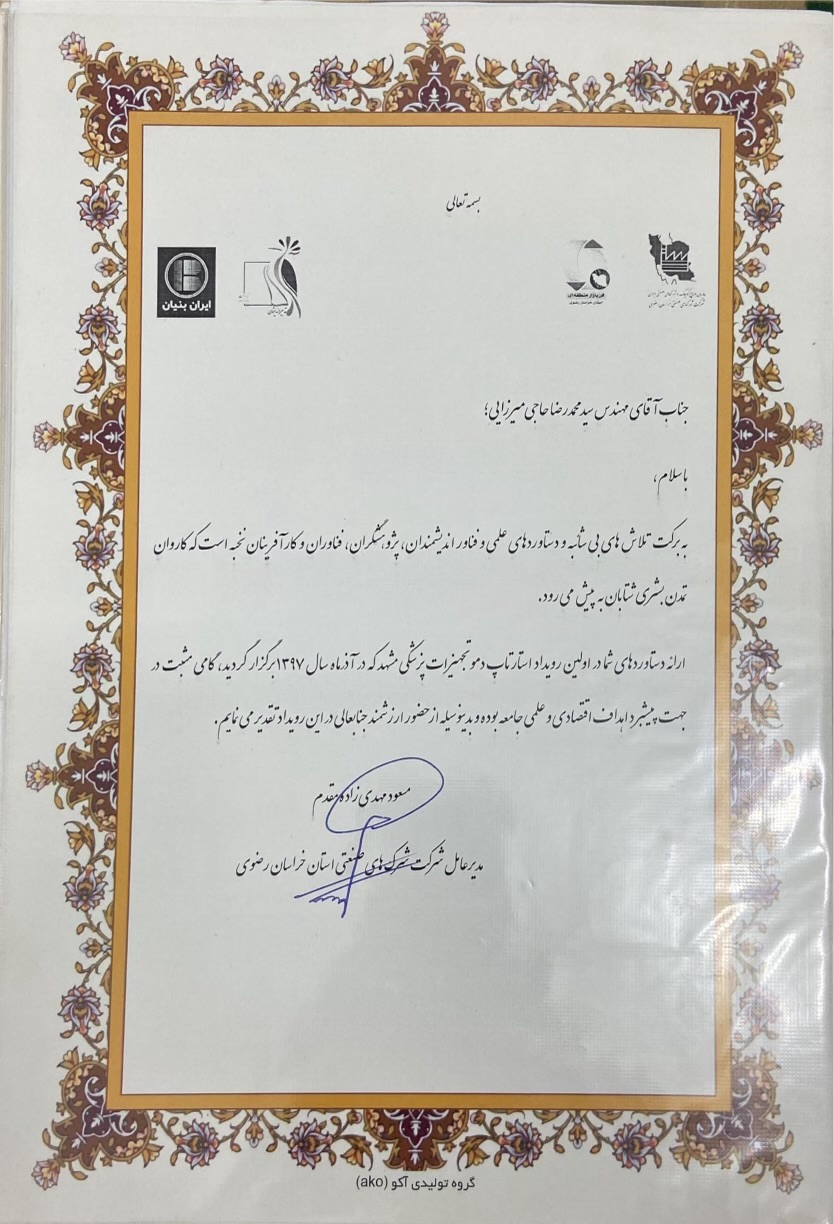 بسمه تعالی
ایران بنیان
فن بازار منطقه ای
استان خراسان رضوی
جناب آقای مهندس سید محمدرضا حاجی میرزایی؛
با سلام،
به برکت تلاش های بی شائبه و دستاوردهای علمی و فناور اندیشمندان، پژوهشگران، فناوران و کارآفرینان نخبه است که کاروان
تمدن بشری شتابان به پیش می رود.
ارائه دستاوردهای شما در اولین رویداد استارتاپ دمو تجهیزات پزشکی مشهد که در آذرماه سال ۱۳۹۷ برگزار گردید، گامی مثبت در
جهت پیشبرد اهداف اقتصادی و علمی جامعه بوده و بدینوسیله از حضور ارزشمند جنابعالی در این رویداد تقدیر می نمایم.
مسعود مهدی زاده مقدم
مدیرعامل شرکت شهرک های صنعتی استان خراسان رضوی
گروه تولیدی آکو (ako)